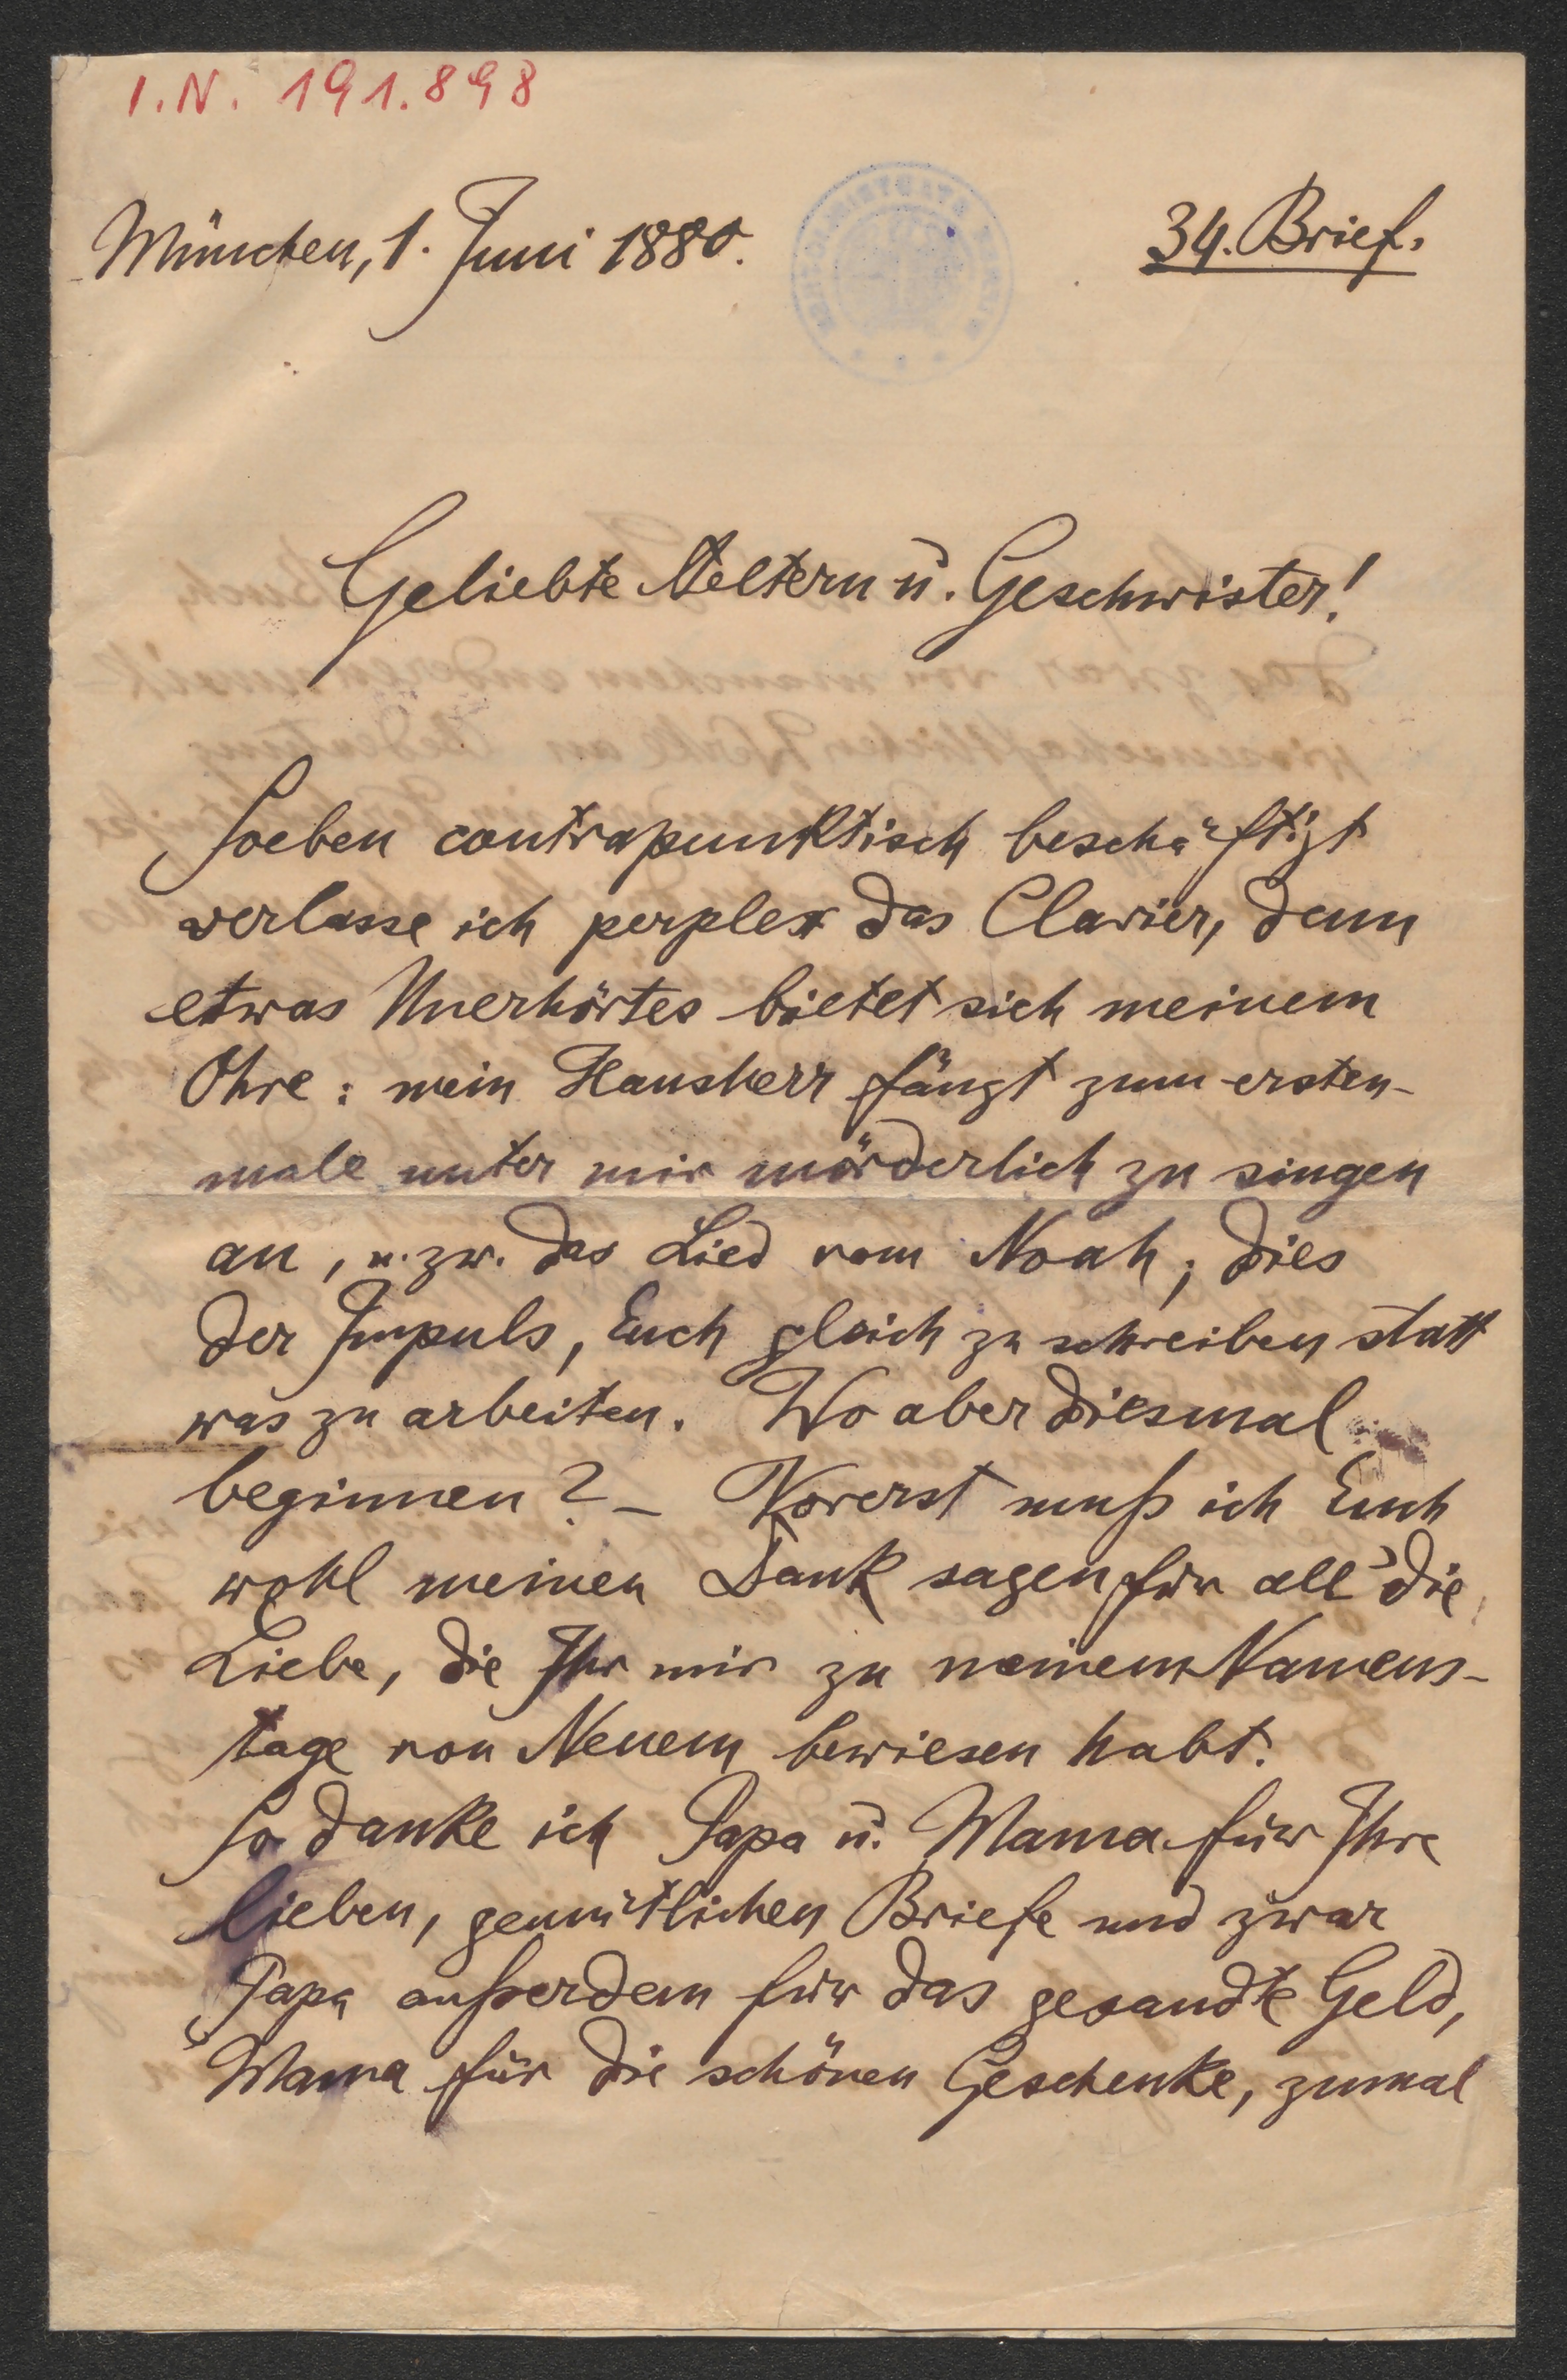 I.N. 191.898
München, 1. Juni 1880.
34. Brief.
Geliebte Aeltern u. Geschwister!
Soeben contrapunktisch beschäftigt
verlasse ich perplex das Clavier, denn
etwas Unerhörtes bietet sich meinem
Ohre: mein Hausherr fängt zum ersten-
male unter mir mörderlich zu singen
an, u. zw. das Lied vom Noah; dies
der Impuls, Euch gleich zu schreiben statt
was zu arbeiten. Wo aber diesmal
beginnen? – Vorerst muß ich Euch
wohl meinen Dank sagen für all' die
Liebe, die Ihr mir zu meinem Namens-
tage von Neuem bewiesen habt.
So danke ich Papa u. Mama für Ihre
lieben, gemütlichen Briefe und zwar
Papa außerdem für das gesandte Geld,
Mama für die schönen Geschenke, zumal